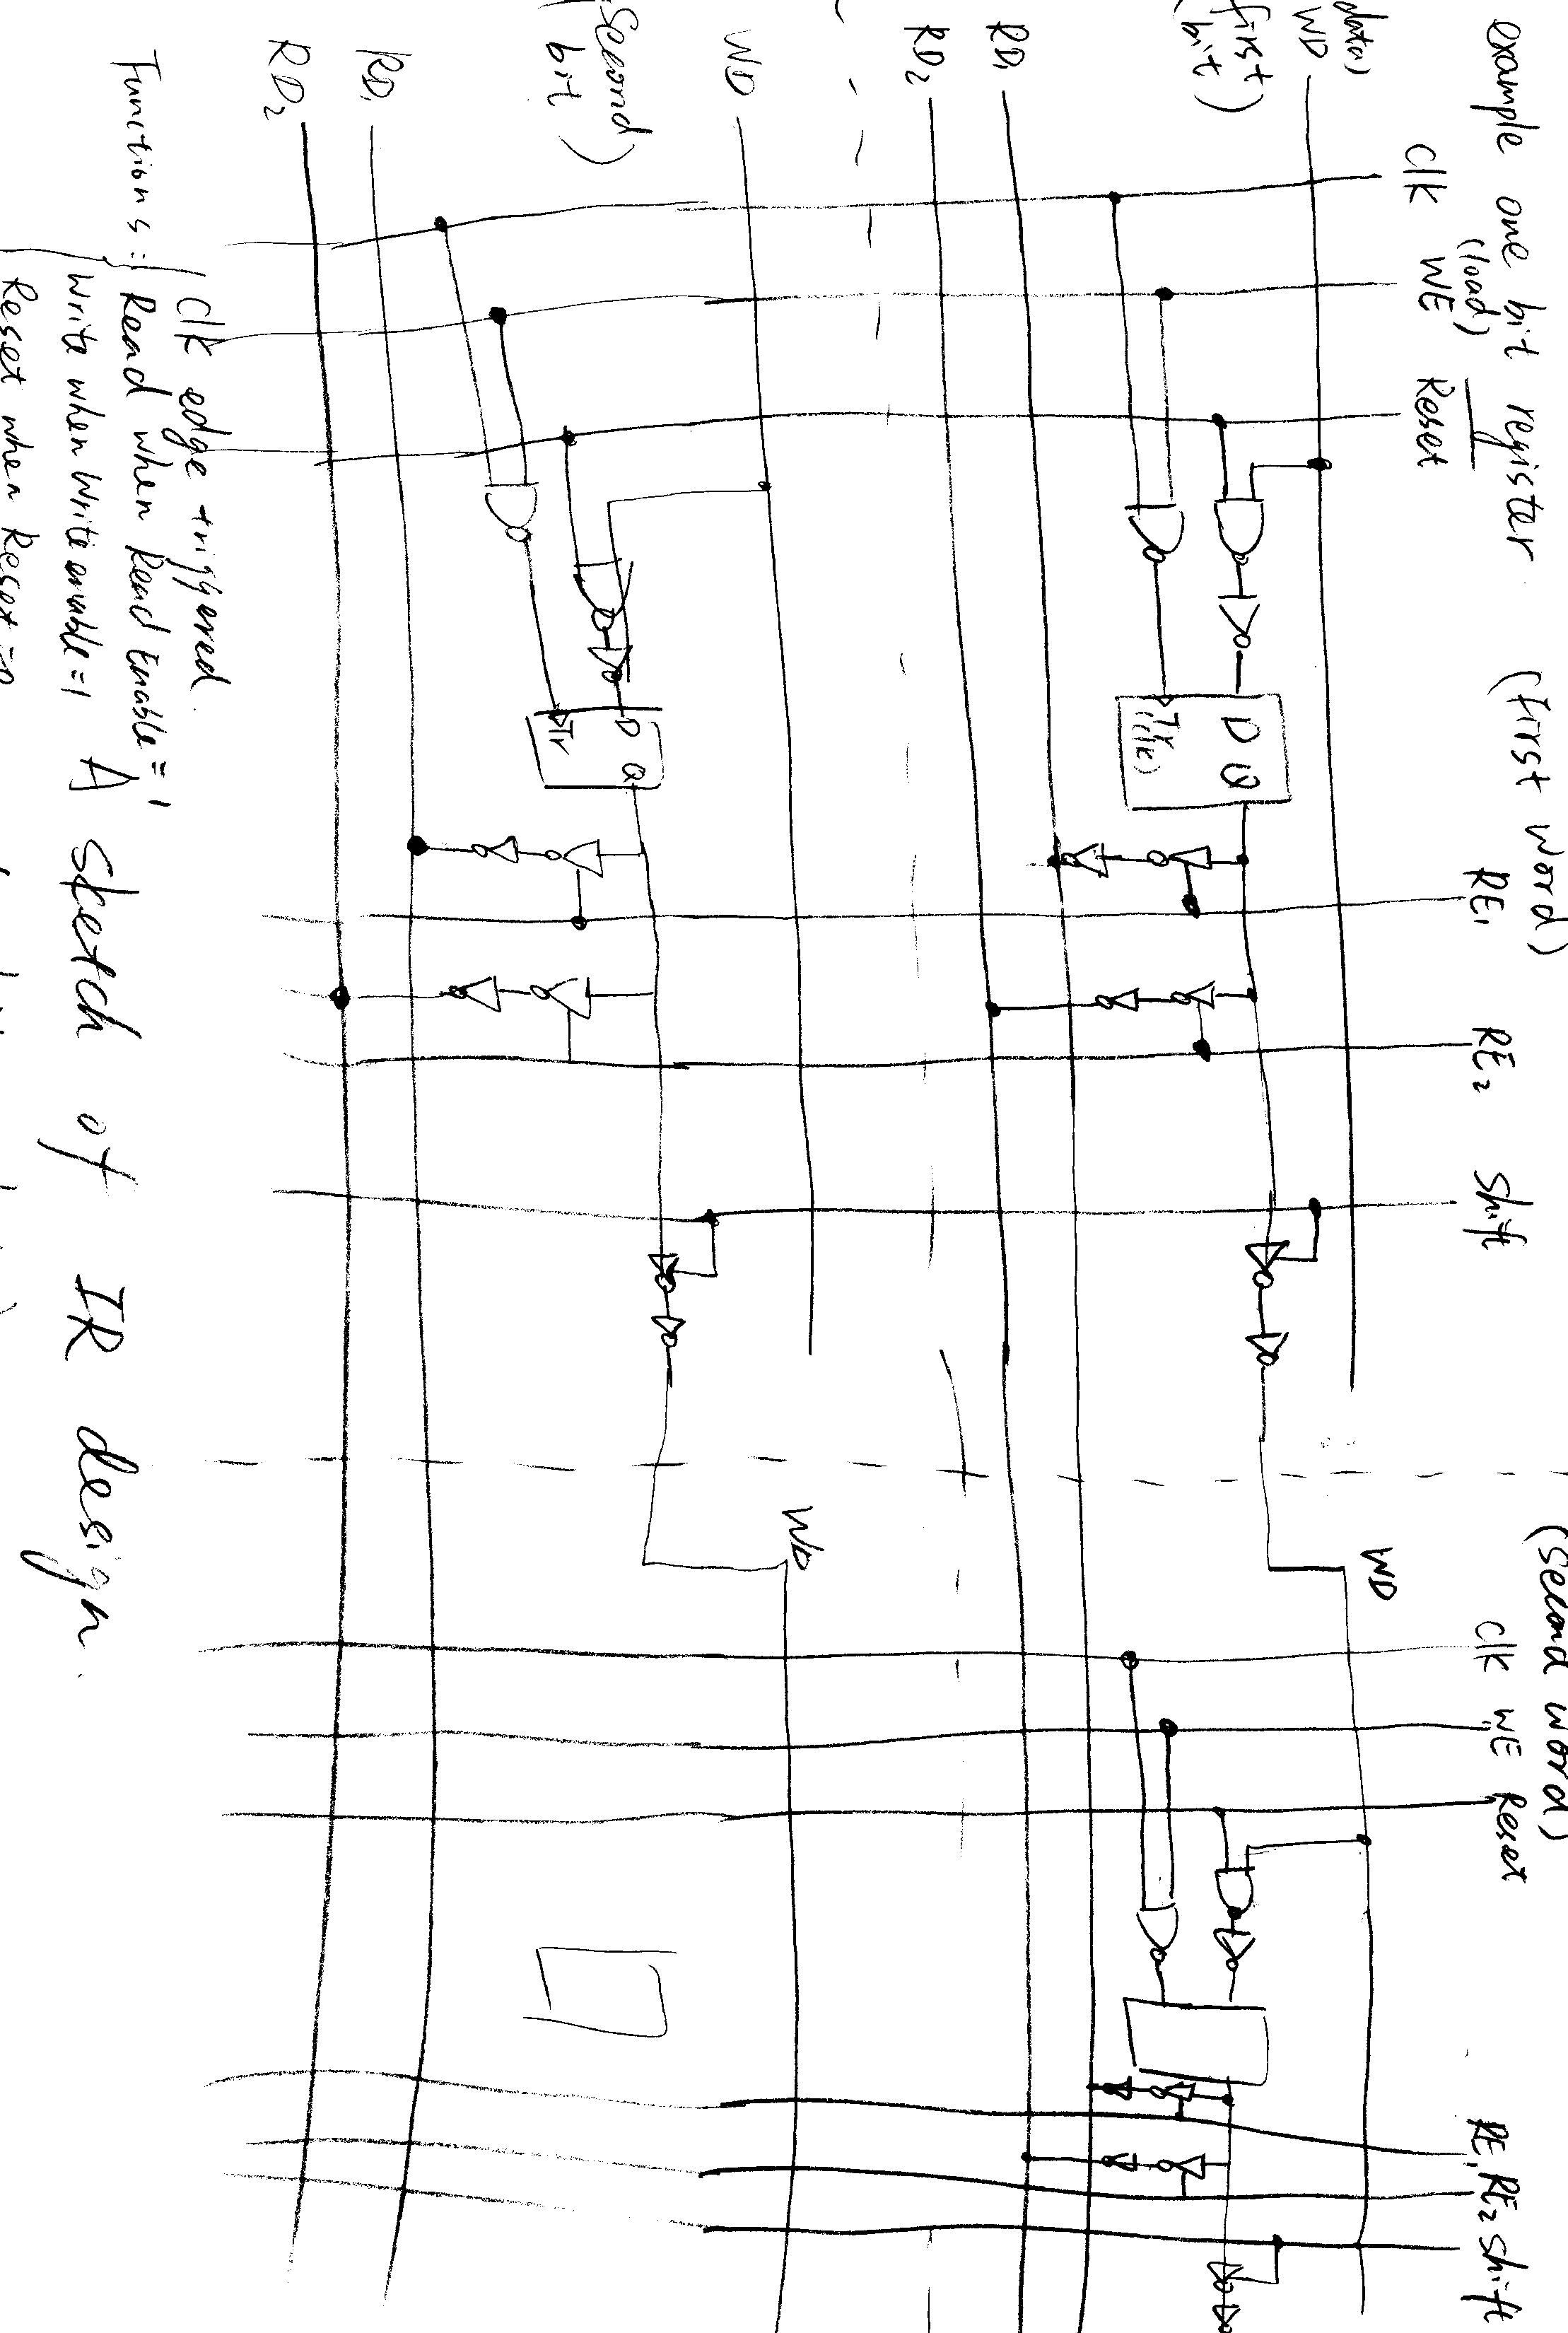 example one bit register
(First word)
(Second word)
Clk
(load)
WE
Reset
RE₁
RE₂
Shift
Clk
WE
Reset
RE₁
RE₂
Shift
data)
WD
first
bit)
D Q
Tr
(clk)
WD
RD₁
RD₂
WD
Second
bit)
D Q
Tr
WD
RD₁
RD₂
Functions = Clk edge triggered.
Read when Read Enable = 1
Write when Write enable = 1
Reset when Reset = 0
A sketch of IR design.